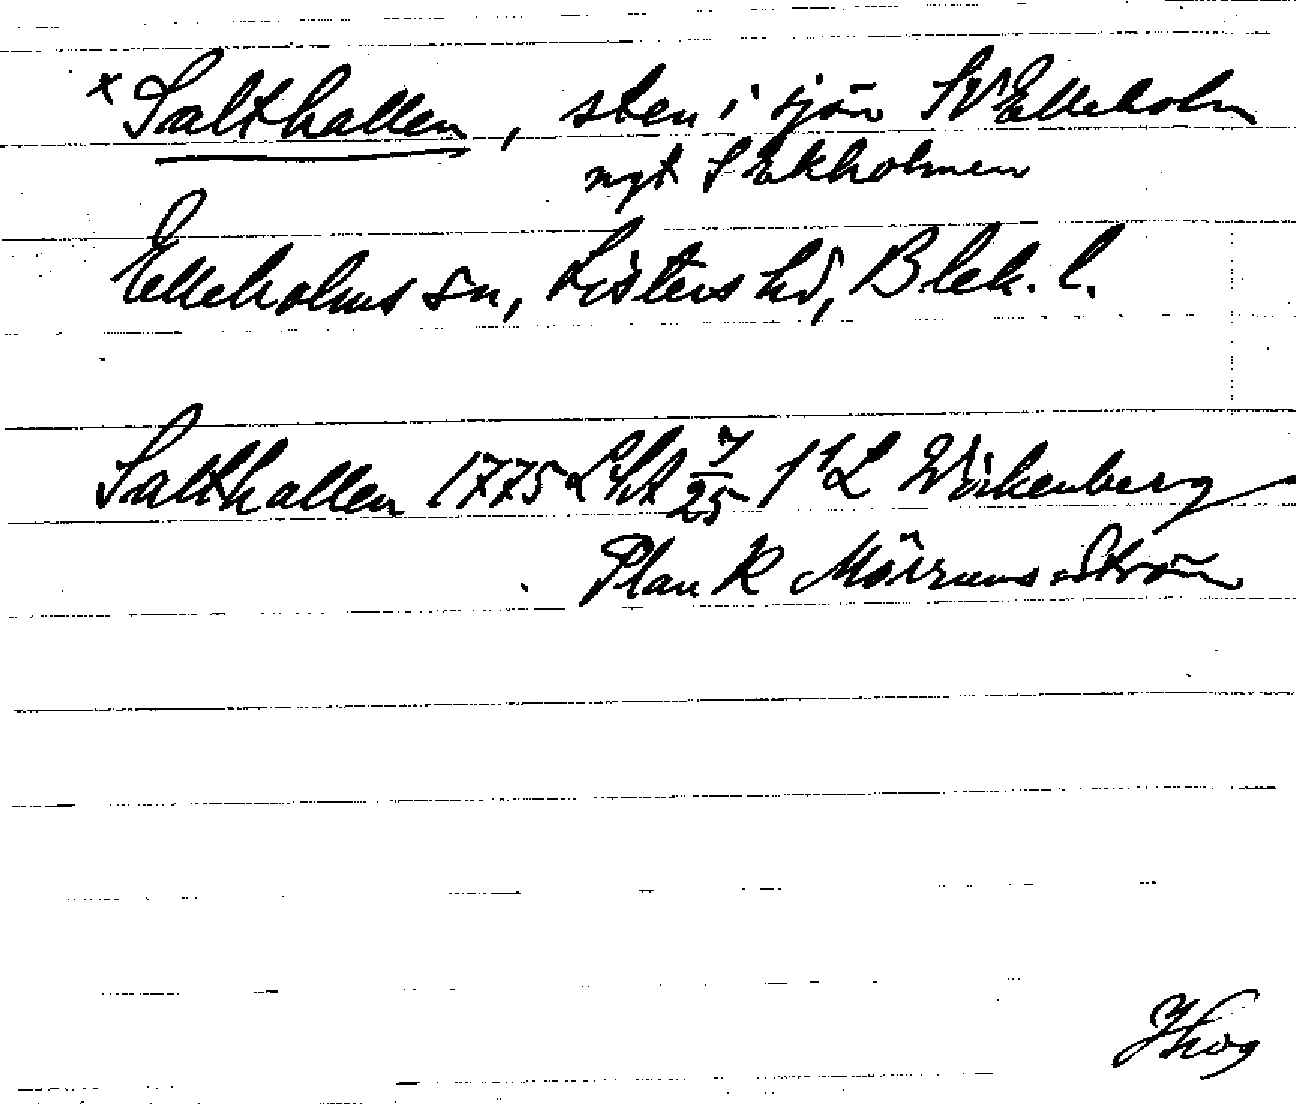 x Salthallen, sten i sjön SV Elleholm
ngt S Ekholmen
Elleholms sn, Listers hd, Blek. l.
Salthallen 1775 LSkt 7/25 f L Wirkenberg
Plan K Mörrums Ström